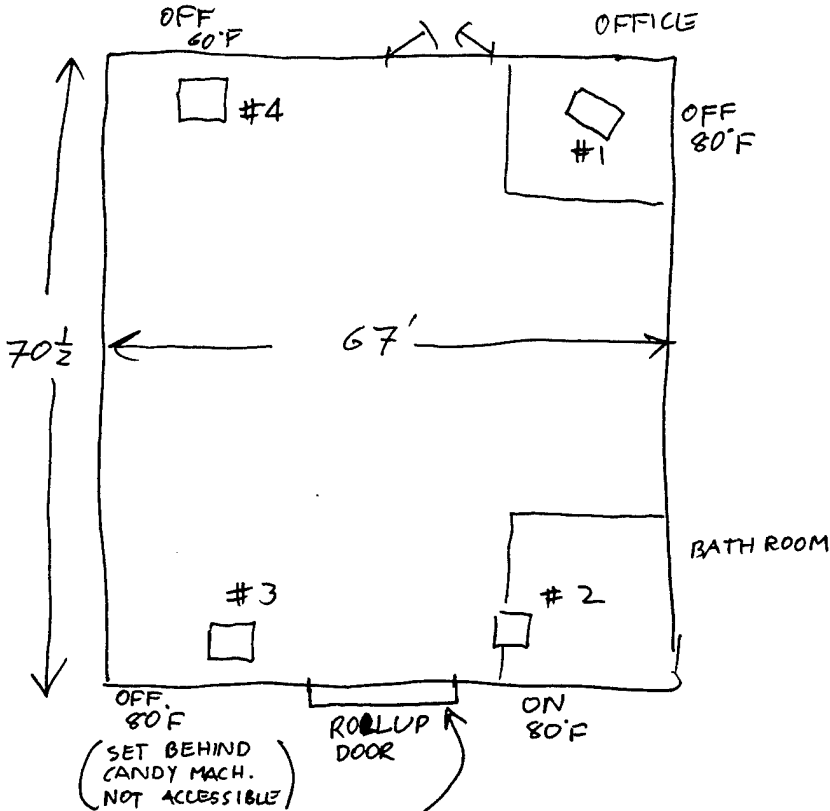 OFF
60°F
OFFICE
#4
#1
OFF
80°F
70½
67'
BATHROOM
#3
#2
OFF
80°F
(SET BEHIND
CANDY MACH.
NOT ACCESSIBLE)
ROLLUP
DOOR
ON
80°F